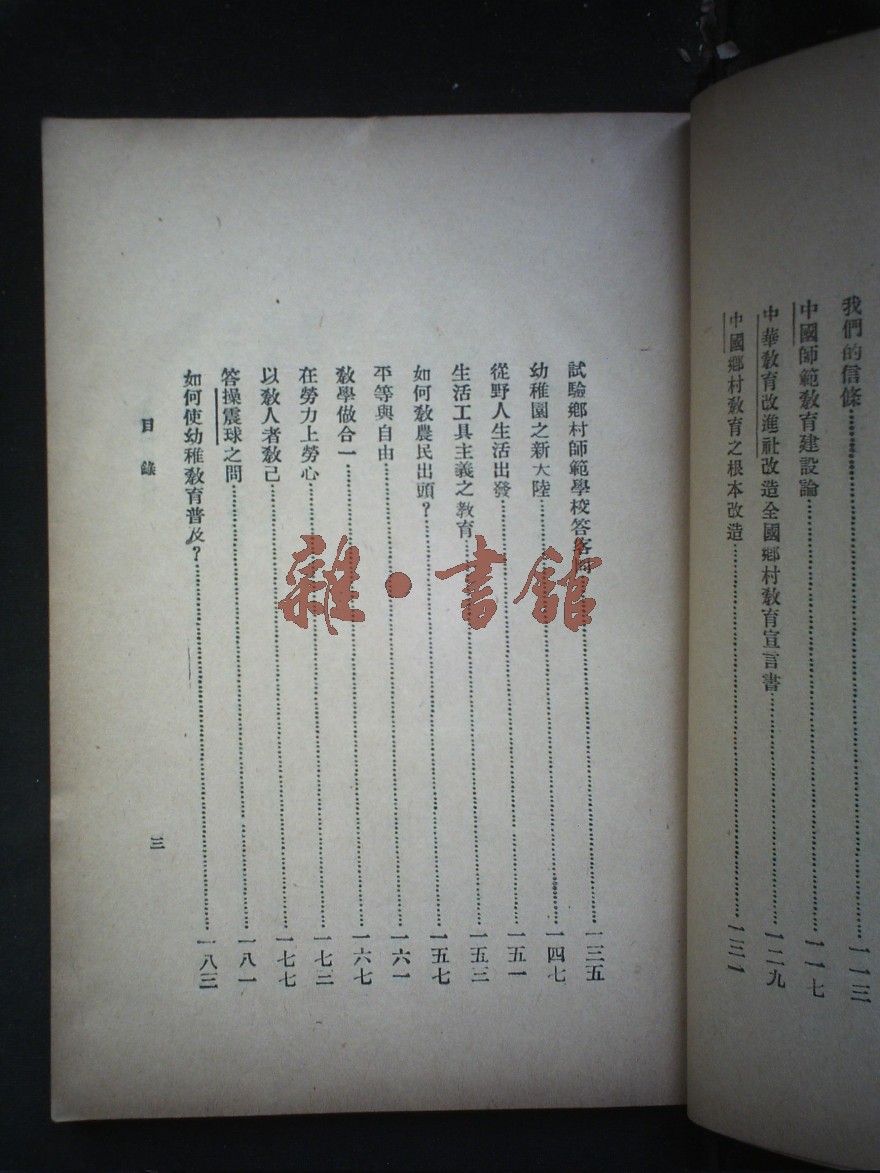 我們的信條……一一三
中國師範教育建設論……一一七
中華教育改進社改造全國鄉村教育宣言書……一二九
中國鄉村教育之根本改造……一三一
試驗鄉村師範學校答客問……一三五
幼稚園之新大陸……一四七
從野人生活出發……一五一
生活工具主義之教育……一五三
如何教農民出頭?……一五七
平等與自由……一六一
教學做合一……一六七
在勞力上勞心……一七三
以教人者教己……一七七
答操震球之問……一八一
如何使幼稚教育普及?……一八三
目錄
三
雜·書館